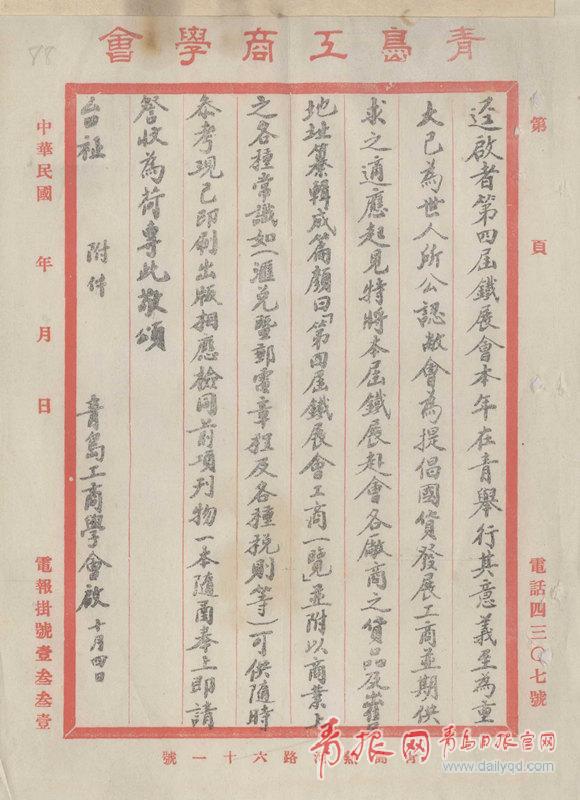 青島工商學會
88
第 頁
電話四三〇七號
逕啟者第四屆鐵展會本年在青舉行其意義至為重
大已為世人所公認敝會為提倡國貨發展工商並期供
求之適應起見特將本屆鐵展赴會各廠商之貨品及
地址纂輯成篇顏曰「第四屆鐵展會工商一覽」並附以商業上
之各種常識如(滙兌暨郵電章程及各種稅則等)可供隨時
參考現已印刷出版相應檢同前項刊物一本隨函奉上即請
詧收為荷專此敬頌
台祉 附件
青島工商學會啟 十月四日
中華民國 年 月 日
電報掛號壹叁叁壹
路六十一號
青报网 青岛日报官网
www.dailyqd.com